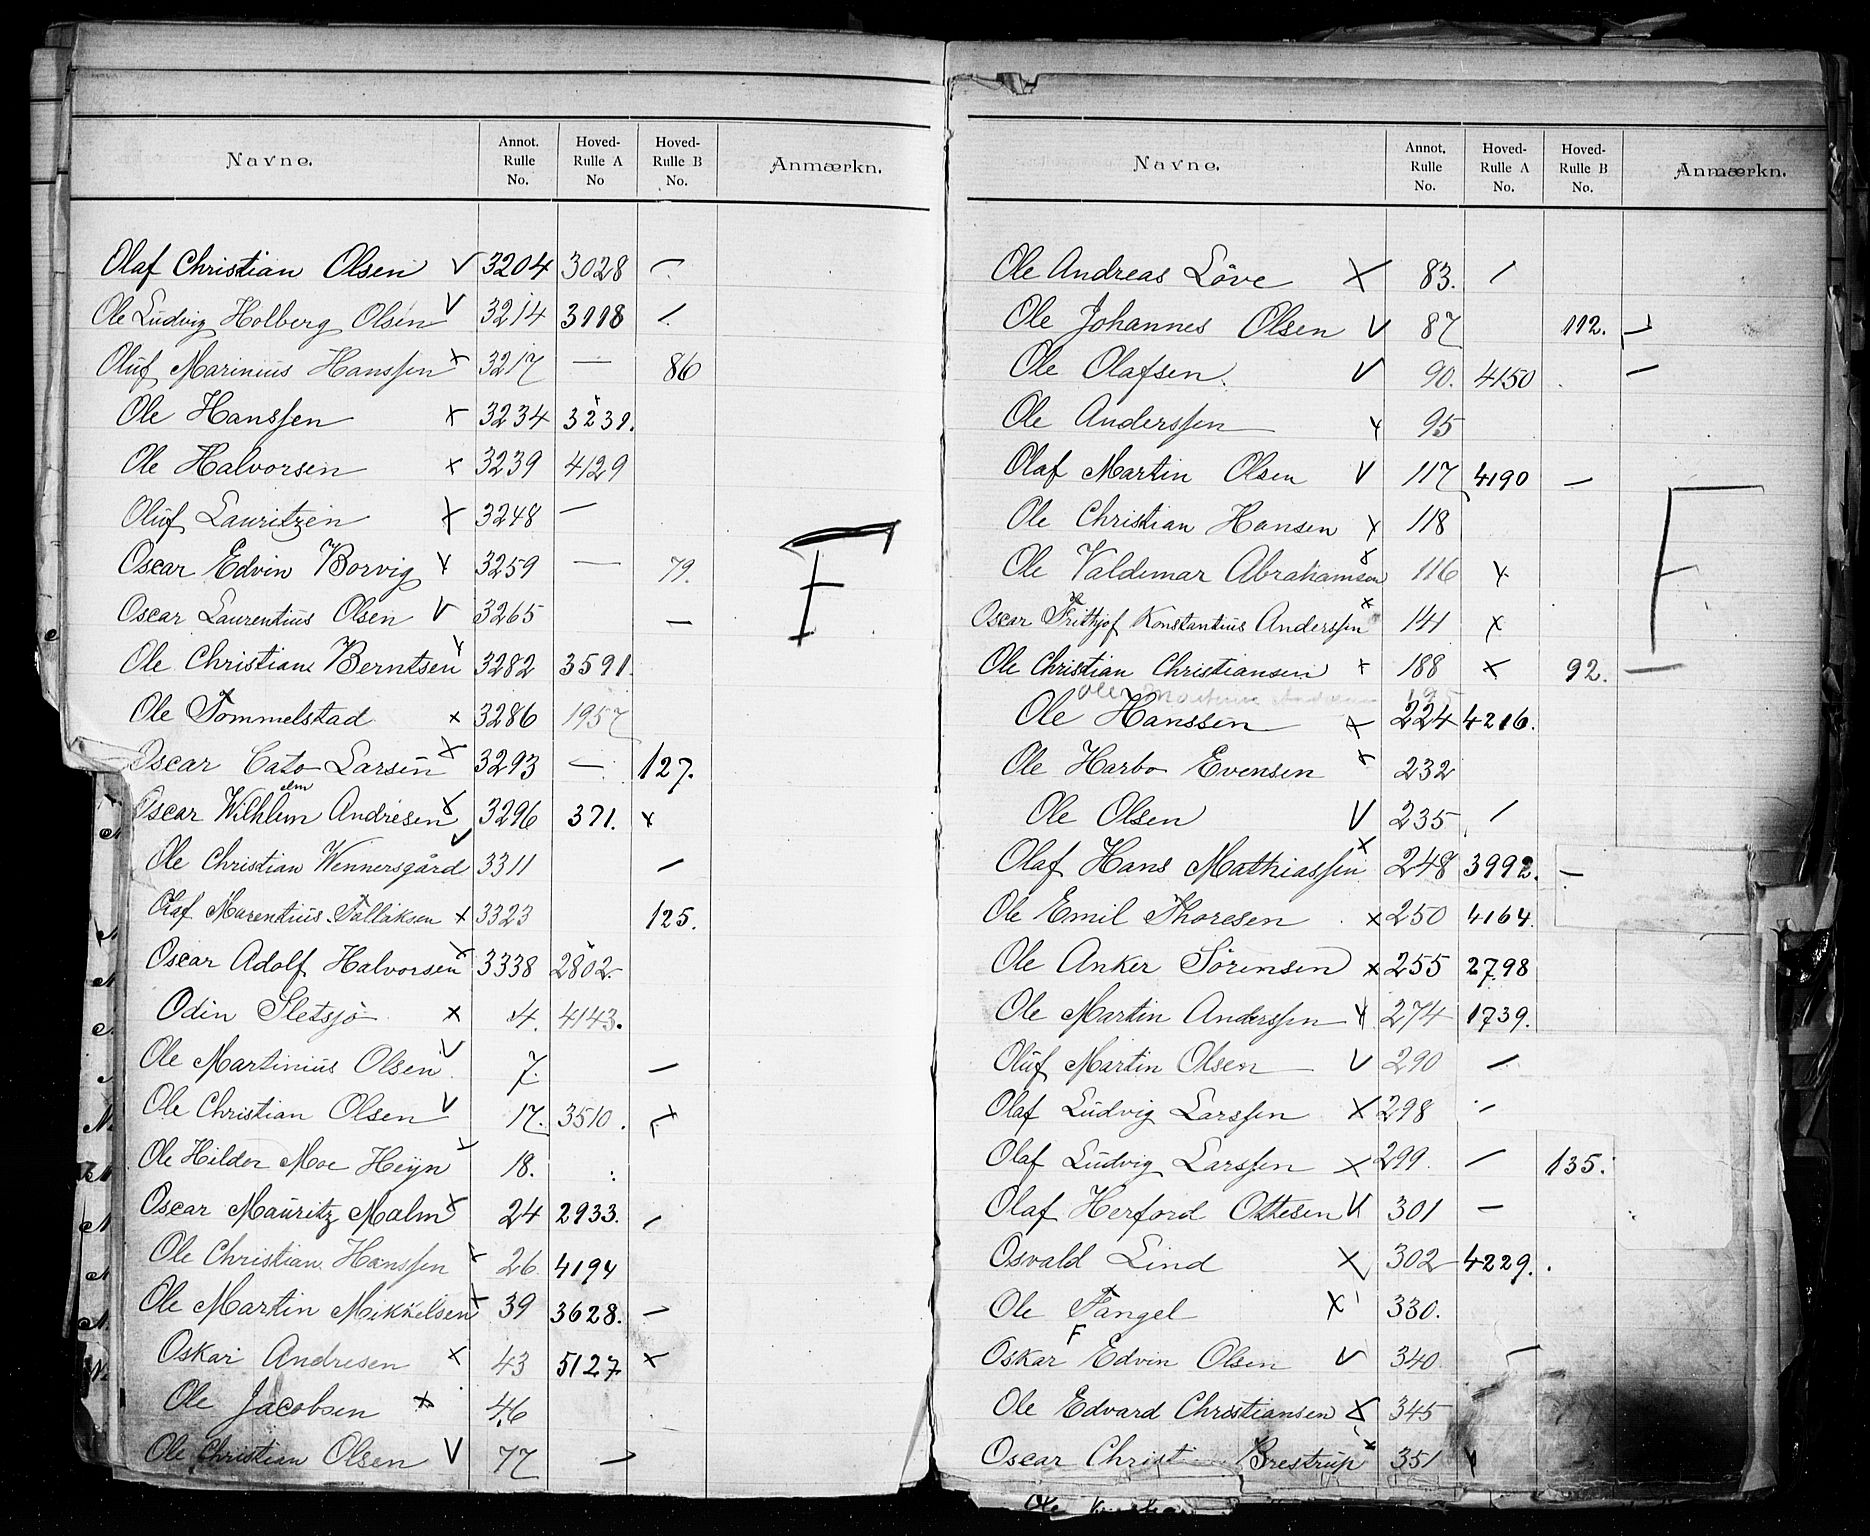 Navne. Annot. Rulle No. Hoved-Rulle A No Hoved-Rulle B No. Anmærkn.
Olaf Christian Olsen V 3204 3028 —
Ole Ludvig Holberg Olsen V 3214 3118 —
Oluf Marinius Hanssen x 3217 — 86
Ole Hanssen x 3234 3239.
Ole Halvorsen x 3239 4129
Oluf Lauritzen x 3248 —
Oscar Edvin Borvig x 3259 — 79.
Oscar Laurentius Olsen V 3265 —
Ole Christian Berntsen 3282 3591.
Ole Tommelstad x 3286 1957
Oscar Cato Larsen x 3293 — 127.
Oscar Wilhlem elm Andresen x 3296 371. x
Ole Christian Wennersgård V 3311 —
Olaf Marentius Tallaksen x 3323 125.
Oscar Adolf Halvorsen x 3338 2802
Odin Sletsjö x 4. 4143.
Ole Martinius Olsen V 7. —
Ole Christian Olsen V 17. 3510. x
Ole Hilder Moe Heijn 18.
Oscar Mauritz Malm x 24 2933. —
Ole Christian Hanssen x 26 4194
Ole Martin Mikkelsen x 39 3628. —
Oskar Andresen x 43 5127 x
Ole Jacobsen x 46
Ole Christian Olsen V 77 —
F
Navne. Annot. Rulle No. Hoved-Rulle A No. Hoved-Rulle B No. Anmærkn.
Ole Andreas Löve x 83. —
Ole Johannes Olsen V 87 112. —
Ole Olafsen. V 90. 4150 —
Ole Anderssen x 95
Olaf Martin Olsen V 117 4190 —
Ole Christian Hansen x 118
Ole Valdemar Abrahamsen x 116 x
Oscar Frithjof Konstantius Anderssen x 141 x
Ole Christian Christiansen x 188 x 92. —
Ole 195
Ole Hanssen x 224 4216.
Ole Harbo Evensen x 232
Ole Olsen V 235 —
Olaf Hans Mathiassen x 248 3992. —
Ole Emil Thoresen x 250 4164.
Ole Anker Sörensen x 255 2798
Ole Martin Anderssen x 274 1739.
Oluf Martin Olsen V 290 —
Olaf Ludvig Larssen x 298 —
Olaf Ludvig Larssen x 299. — 135.
Olaf Herford Ottesen V 301 —
Osvald Lind x 302 4229.
Ole Tangel x 330.
Oskar F Edvin Olsen V 340 —
Ole Edvard Christiansen x 345
Oscar Christ Brestrup x 351
Ole
F